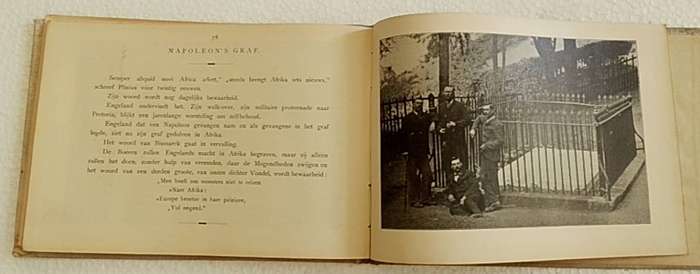 78
NAPOLEON'S GRAF.
Semper aliquid novi Africa affert," „steeds brengt Afrika iets nieuws,"
schreef Plinius voor twintig eeuwen.
Zijn woord wordt nog dagelijks bewaarheid.
Engeland ondervindt het. Zijn walkover, zijn militaire promenade naar
Pretoria, blijkt een jarenlange worsteling om zelfbehoud.
Engeland dat ven Napoleon gevangen nam en als gevangene in het graf
legde, ziet nu zijn graf gedolven in Afrika.
Het woord van Bismarck gaat in vervulling.
De Boeren zullen Engelands macht in Afrika begraven, maar zij alleen
zullen het doen, zonder hulp van vreemden, daar de Mogendheden zwijgen en
het woord van den derden groote, van onzen dichter Vondel, wordt bewaarheid:
„Men hoeft om monsters niet te reizen
„Naar Afrika:
„Europe broetse in haer paleizen,
„Vol ongena."